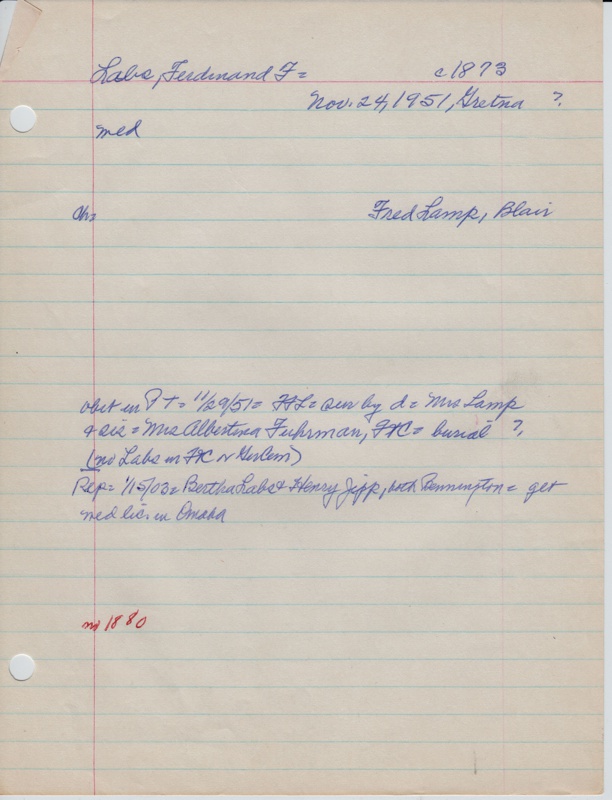 Labs, Ferdinand F = c1873
Nov. 24, 1951, Gretna ?
med
ch = Fred Lamp, Blair
obit in PT = 11/29/51 = = sur by d = Mrs Lamp
& sis = Mrs Albertina Fuhrman, FXC = burial ?
(no Labs in FXC or )
Pap = 1/15/03 = Bertha Labs & Henry Jipp, both Bennington = get
med lic. in Omaha
no 1880